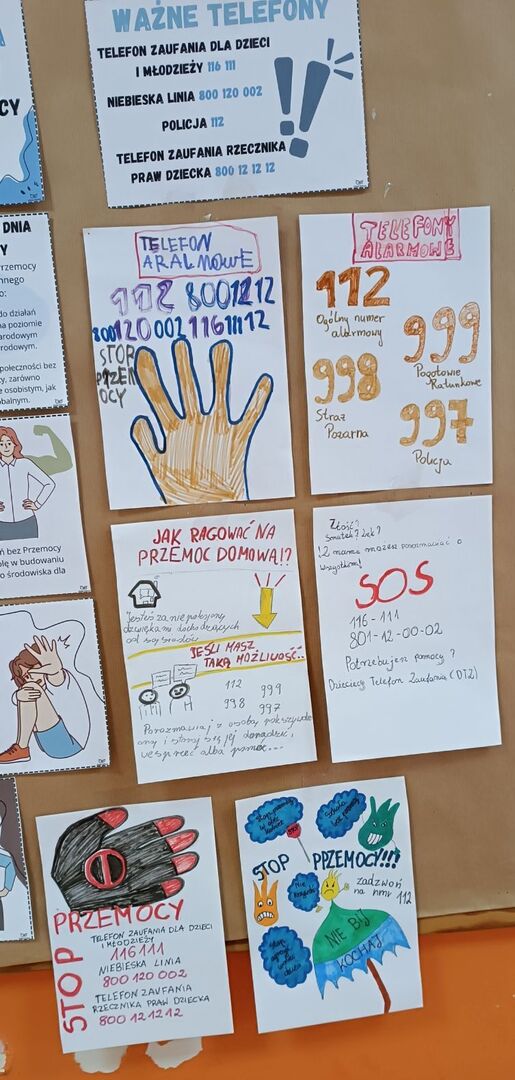 WAŻNE TELEFONY
TELEFON ZAUFANIA DLA DZIECI
I MŁODZIEŻY 116 111
NIEBIESKA LINIA 800 120 002
POLICJA 112
TELEFON ZAUFANIA RZECZNIKA
PRAW DZIECKA 800 12 12 12
CY
DNIA
Y
Przemocy
nnego
o:
do działań
na poziomie
arodowym
rodowym.
połeczności bez
y, zarówno
e osobistym, jak
obalnym.
eń bez Przemocy
olę w budowaniu
o środowiska dla
TELEFON
ARALMOWE
112 8001212
800120002 116111 12
STOP
PRZEM
OCY
TELEFONY
ALARMOWE
112
Ogólny numer
alarmowy
999
Pogotowie
Ratunkowe
998
Straż
Pożarna
997
Policja
JAK RAGOWAĆ NA
PRZEMOC DOMOWĄ!?
Jesteś zaniepokojony
dzwiękami dochodzących
od sąsiadów
JEŚLI MASZ
TAKĄ MOŻLIWOŚĆ..
112 999
998 997
Porozmawiaj z osobą pokrzywdz
oną i staraj się jej doradzić,
wesprzeć alba pomóc...
Złość?
Smutek? Lęk?
!Z mamą możesz porozmawiać o
wszystkim!
SOS
116-111
801-12-00-02
Potrzebujen pomocy?
Dziecięcy Telefon Zaufania (DTZ)
STOP
PRZEMOCY
TELEFON ZAUFANIA DLA DZIECI
I MŁODZIEŻY
116111
NIEBIESKA LINIA
800 120 002
TELEFON ZAUFANIA
RZECZNIKA PRAW DZIECKA
800 121212
szkoła
bez przemocy
STOP PPZEMOCY!!!
Nie
krzywdź
zadzwoń
na nmr 112
NIE BIJ
KOCHAJ